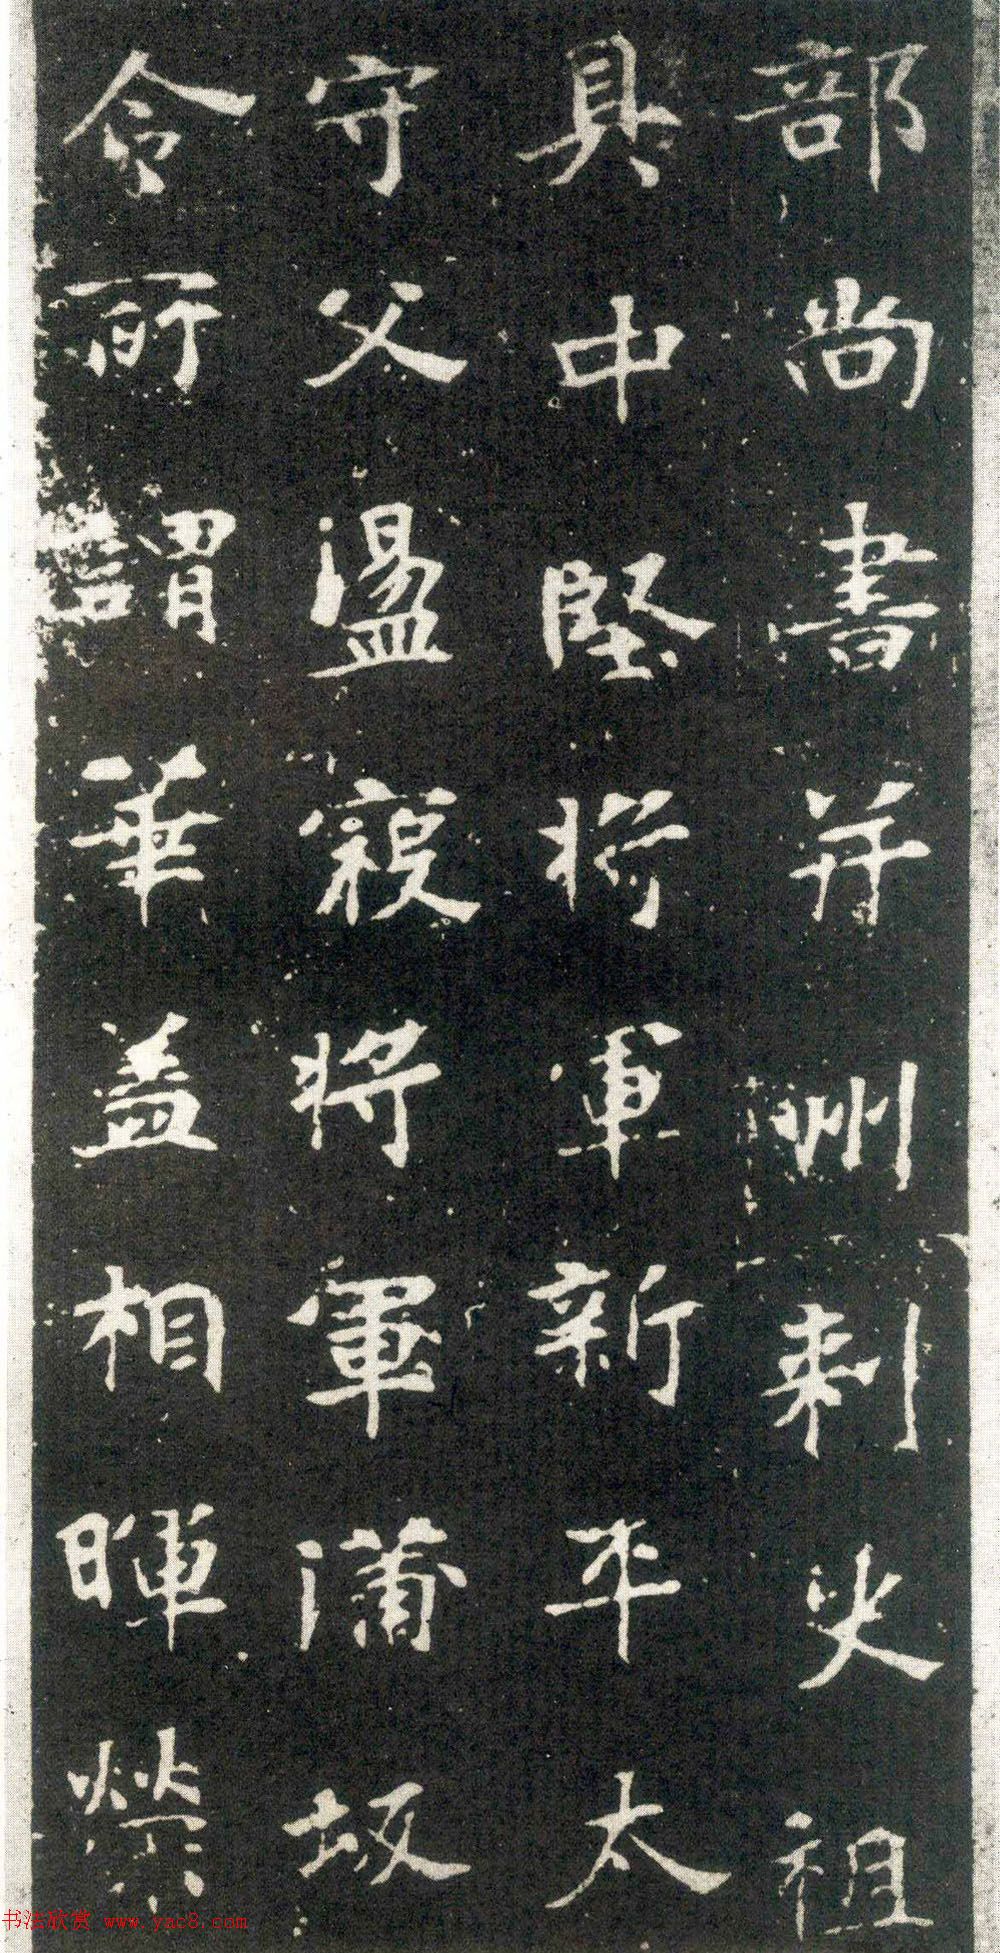 部尚書并州刺史祖
具中堅將軍新平太
守父盪寇將軍蒲坂
令所謂華蓋相暉榮
书法欣赏 www.yac8.com